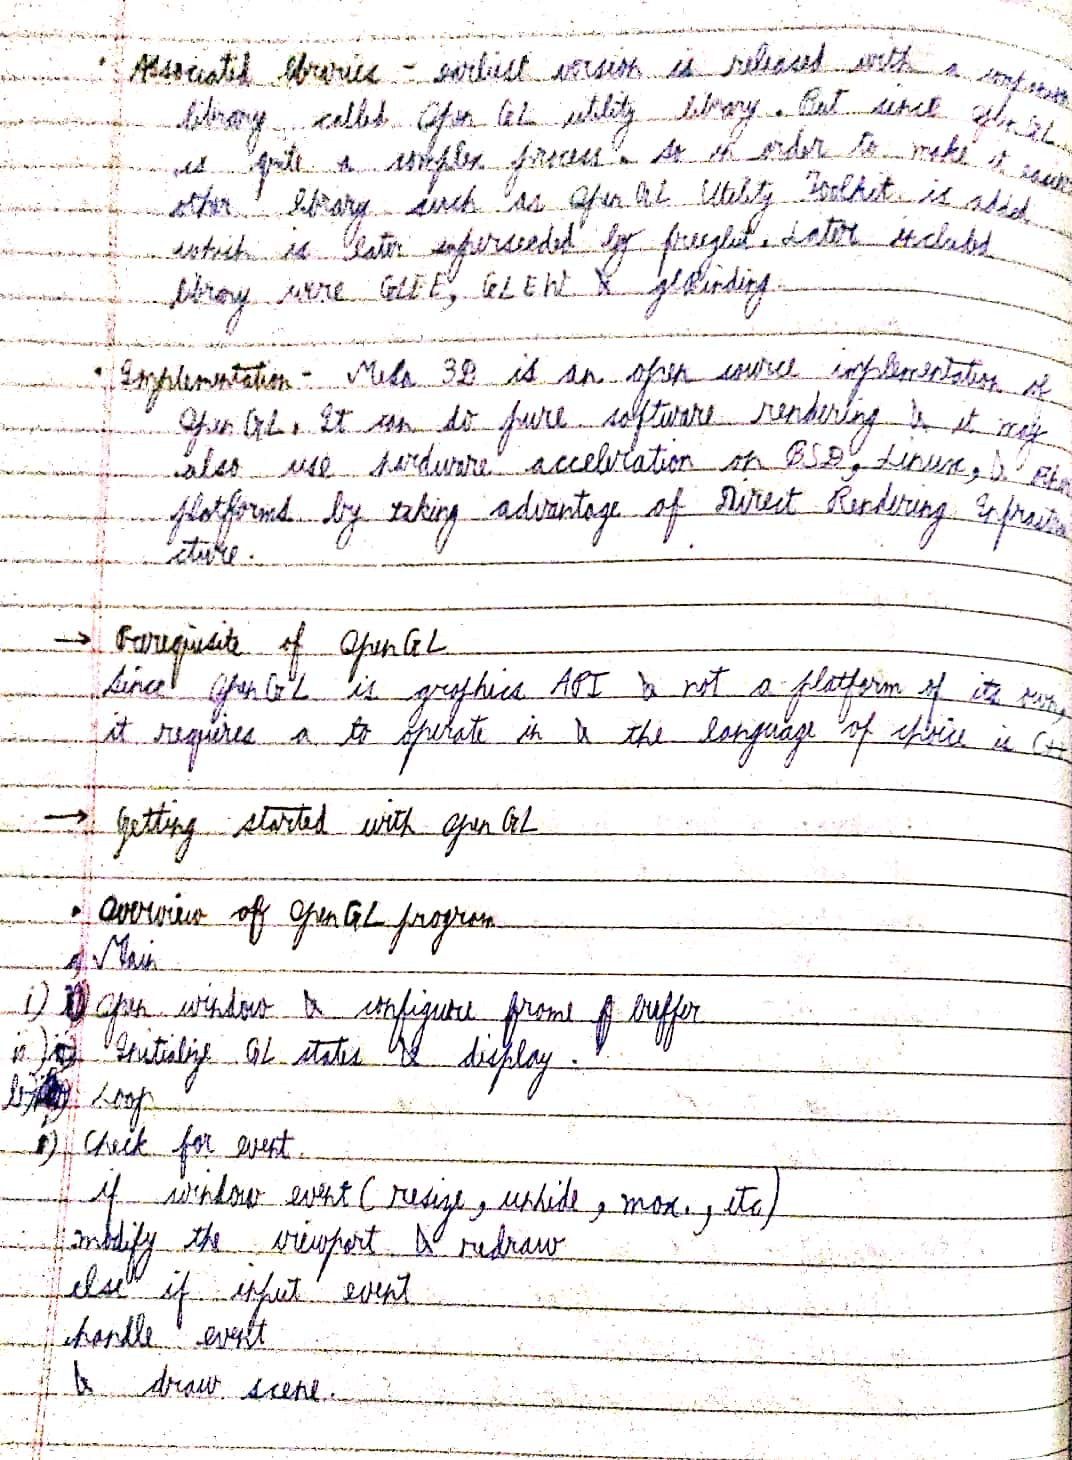 • Associated libraries - earliest version is released with a companion
library called Open GL utility library. But since Open GL
is quite a complex process. So in order to make it easier
other library such as Open GL Utility Toolkit is added
which is later superseeded by freeglut. Later included
library were GLEE, GLEW & glbinding.
• Implementation - Mesa 3D is an open source implementation of
Open GL. It can do pure software rendering & it may
also use hardware acceleration on BSD, Linux, &
platforms by taking advantage of Direct Rendering Infrastru
cture.
→ Prerequisite of Open GL
Since Open GL is graphics API & not a platform of its own,
it requires a to operate in & the language of choice is C++
→ Getting started with Open GL
• Overview off Open GL program
Main
i) Open window & configure frame buffer
ii) Initialize GL states & display.
Loop
i) Check for event
if window event (resize, unhide, max., etc)
modify the viewport & redraw
else if input event
handle event
& draw scene.